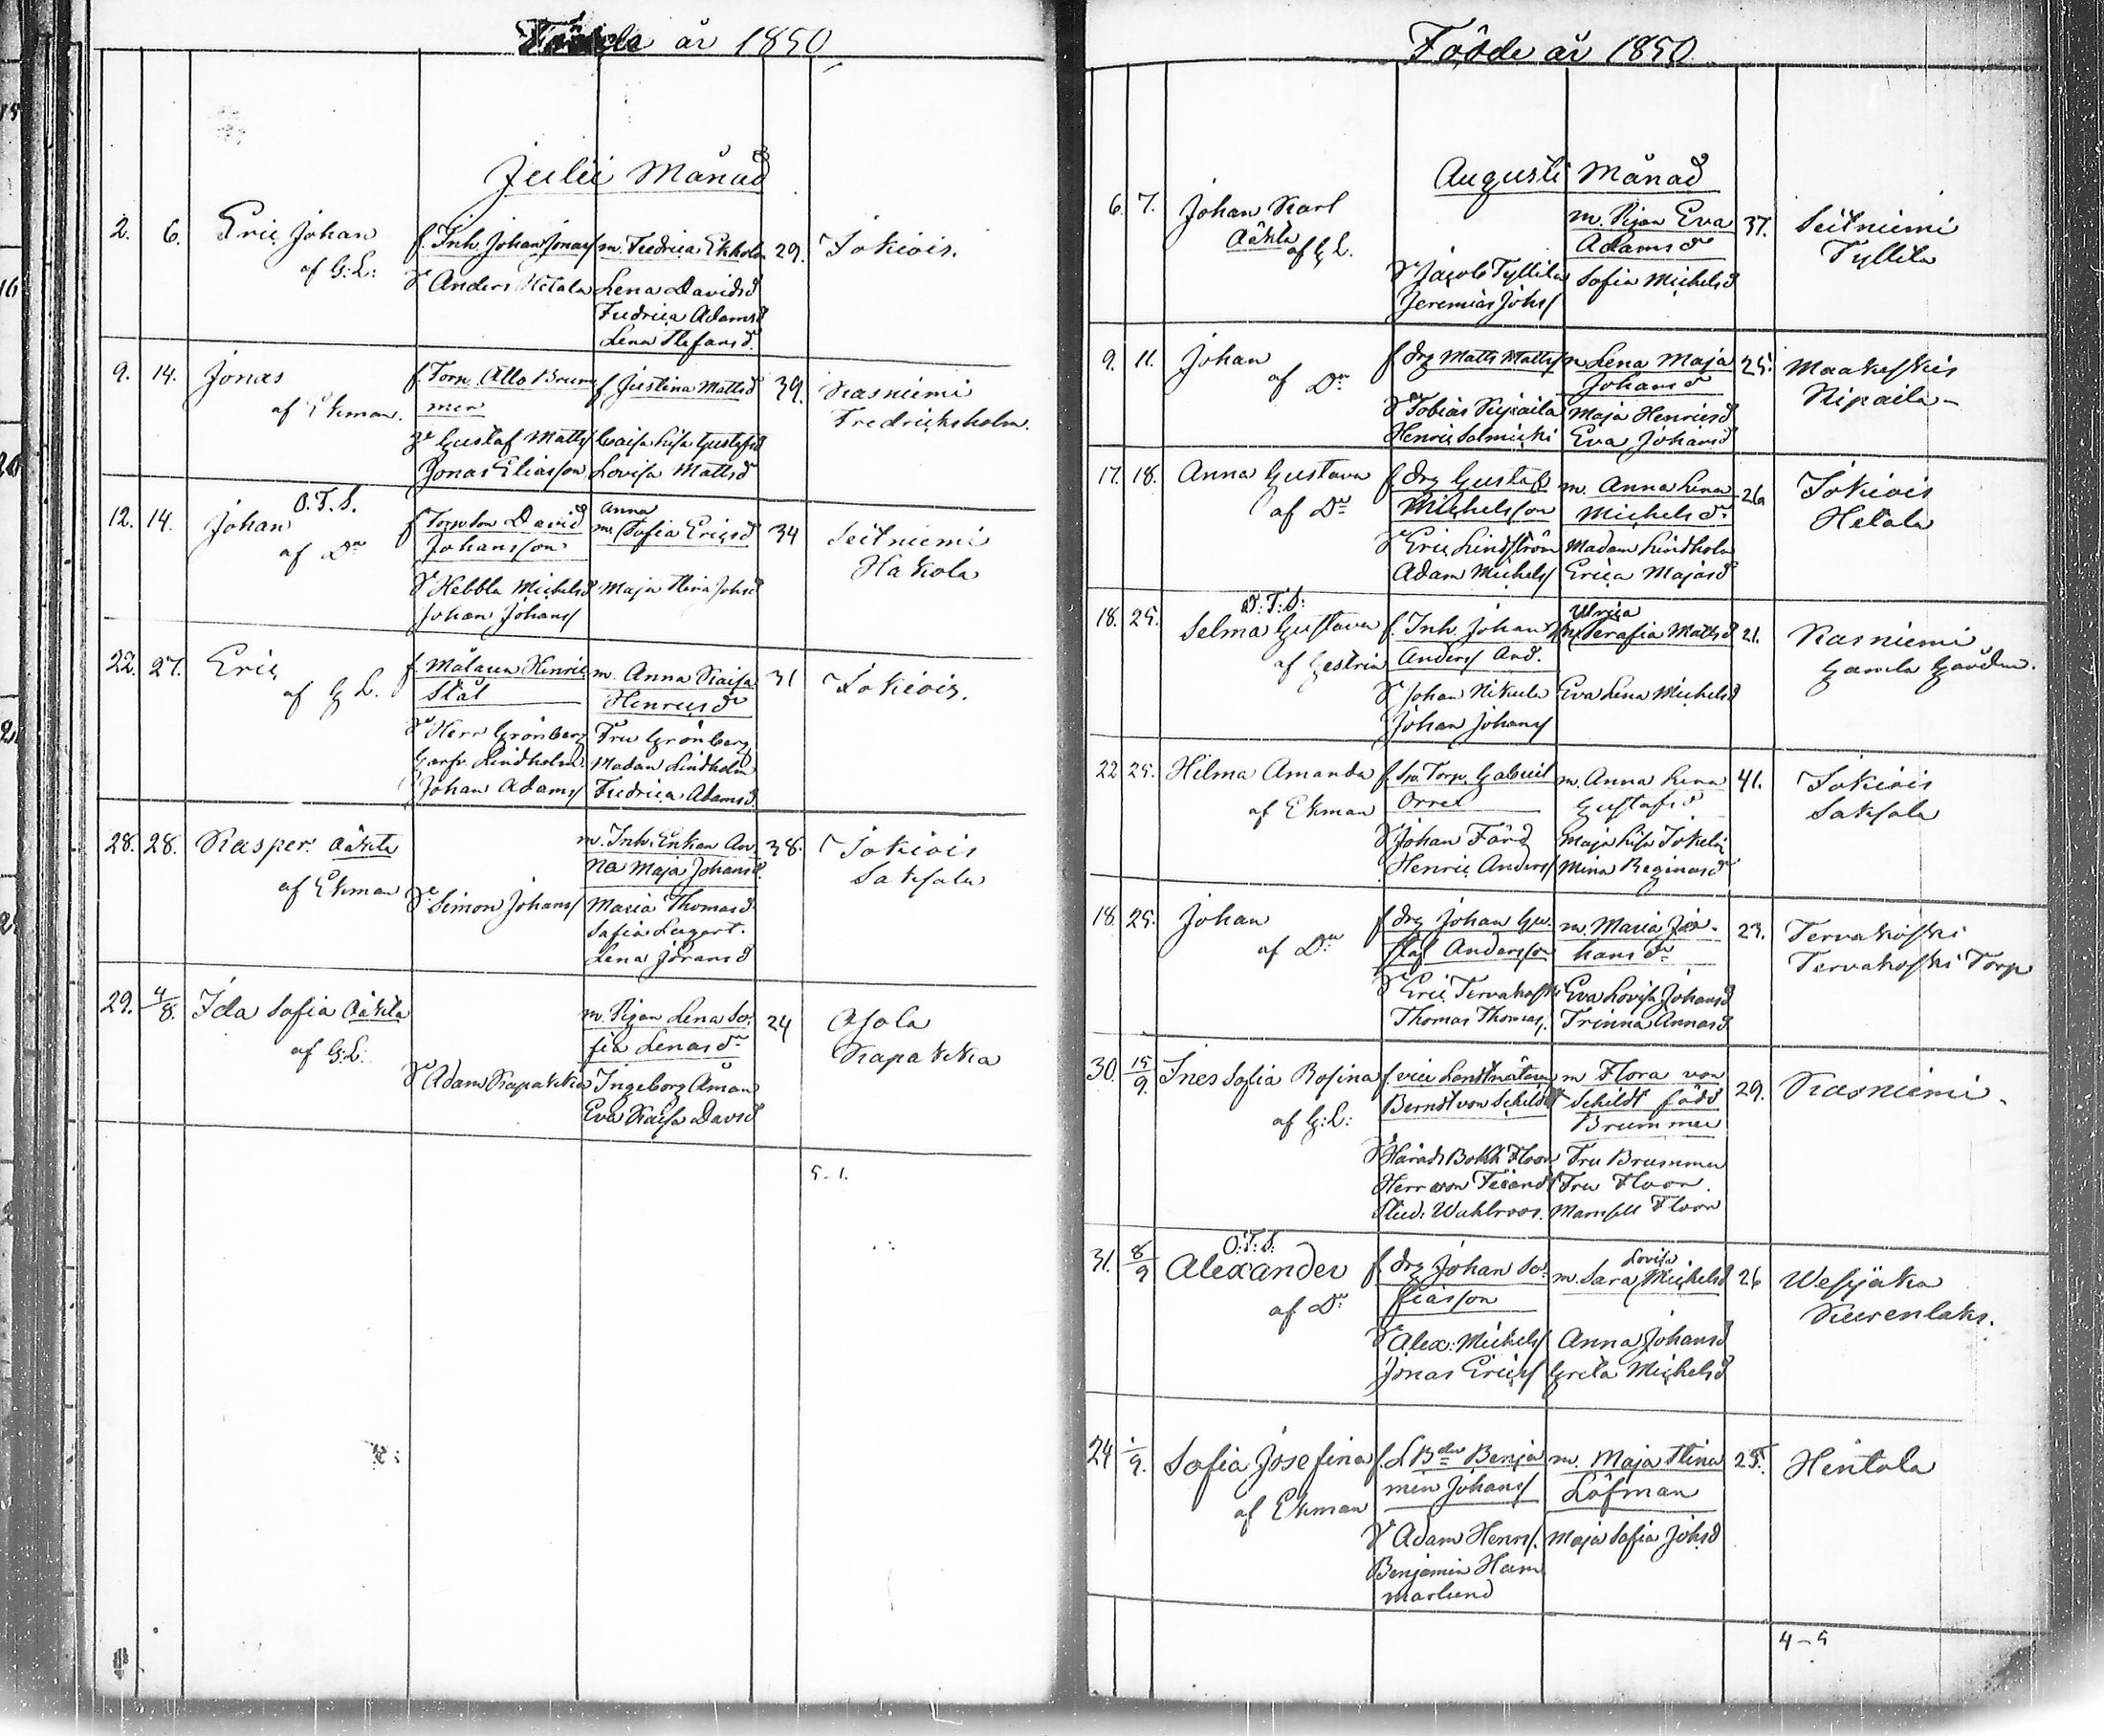 Födde år 1850
Julii Månad
2. 6. Eric Johan f. Inh. Johan Jonas/ m. Fredrica Ekholm 29. Jokiois.
af G:L: Anders Hetala Lena Davidsd
Fredrica Adamsd
Lena Stefansd.
9. 14. Jonas f. Torp. Allo Brum f. Justina Mattsd 39. Kasniemi
af Ekman. mer Fredricksholm.
Gustaf Matts/ Caisa Lisa Gustafsd
Jonas Eliasson Lovisa Mattsd
O.T.S. Anna
12. 14. Johan f. Torp Son David m. Sofia Ericsd 34 Seitniemi
af Dn Johansson Hakola
Hebbla Michelsd Maja Stina Johsd
Johan Johans/
22. 27. Eric f. Målaren Henric m. Anna Kaisa 31 Jokiois.
af G L. Stål Henricsdr
Herr Grönberg Fru Grönberg
Garfv. Lindholm Madam Lindholm
Johan Adams/ Fredrica Adamsd.
28. 28. Kasper. Oäkta m. Inh. Enkan An 38. Jokiois
af Ekman na Maja Johansd. Saksala
Simon Johans/ Maria Thomasd
Safia Lugert.
Lena Jöransd
29. 4/8. Ida Sofia Oäkta m. Pigan Lena So 24 Ojola
af G:L: fia Lenasdr Kapakka
Adam Kapakka Ingeborg Åman
Eva Kaisa Davsd
5-1.
Födde år 1850.
Augusti Månad
6. 7. Johan Karl m. Pigan Eva 37. Seitniemi
Oäkta af G L. Adamsdr Tyllilä
Jacob Tyllilä Sofia Michelsd
Jeremias Johs/
9. 11. Johan f. drg Matts Matts/ m. Lena Maja 25. Maakeskis
af Dn Johansdr Nipaila
Tobias Nipaila Maja Henricsd
Henric Salmicki Eva Johansd
17. 18. Anna Gustava f. drg Gustaf m. Anna Lena 26 Jokiois
af Dn Michelsson Michelsdr Hetala
Eric Lindström Madam Lindholm
Adam Michels/ Erica Majasd
O.T.S: Ulrica
18. 25. Selma Gustava f. Inh. Johan m. Serafia Mattsd 21. Kasniemi
af Gestrin Anders/ And. Gamla Gården.
Johan Nikula Eva Lena Michelsd
Johan Johans/
22 25. Hilma Amanda f. Sp. Torp. Gabriel m. Anna Lena 41. Jokiois
af Ekman Orrel Gustafsd Saksala
Johan Färd Maja Lisa Jokela
Henric Anders/ Mina Reginasd
18. 25. Johan f. drg Johan Gu. m. Maria Jo- 23. Tervakoski
af Dn staf Andersson hansdr Tervakoski Torp
Eric Tervakoski Eva Lovisa Johansd
Thomas Thomas/. Trinna Annasd.
30. 15/9. Ines Sofia Rosina f. vice Landtmätaren m Flora von 29. Kasniemi.
af G:L: Berndt von Schildt Schildt född
Brummer
Härads Bokh Floor Fru Brummer
Herr von Fieandt Fru Floor.
Stud: Wahlroos. Mamsell Floor
O:T:S: Lovisa
31. 8/9 Alexander f. drg Johan So m. Sara Michelsd 26 Wesjäka
af Dn: fiasson Kuurenlaks.
Alex: Michels/ Anna Johansd
Jonas Erics/ Greta Michelsd
24 /9. Sofia Josefina f. L Bdn Benja m. Maja Stina 25. Hentola
af Ekman min Johans/ Löfman
Adam Henrs/. Maja Sofia Johsd
Benjamin Ham
marlund
4-5